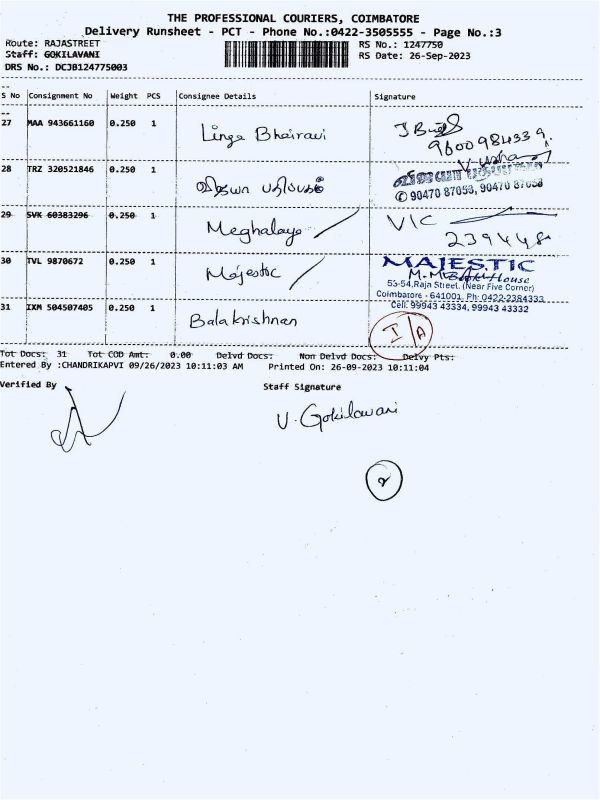 THE PROFESSIONAL COURIERS, COIMBATORE
Delivery Runsheet - PCT - Phone No.:0422-3505555 - Page No.:3
Route: RAJASTREET RS No.: 1247750
Staff: GOKILAVANI RS Date: 26-Sep-2023
DRS No.: DCJB124775003
S No Consignment No Weight PCS Consignee Details Signature
27 MAA 943661160 0.250 1 Linga Bhairavi
9600984339
28 TRZ 320521846 0.250 1 விஜயா பதிப்பகம் விஜயா பதிப்பகம்
✆ 90470 87053, 90470 87058
29 SVK 60383296 0.250 1 Meghalaya VIC
239448
30 TVL 9870672 0.250 1 Majestic MAJESTIC
Book House
53-54,Raja Street, (Near Five Corner)
Coimbatore - 641001. Ph: 0422-2384333
Cell: 99943 43334, 99943 43332
31 IXM 504507405 0.250 1 Balakrishnan I/A
Tot Docs: 31 Tot COD Amt: 0.00 Delvd Docs: Non Delvd Docs: Delvy Pts:
Entered By :CHANDRIKAPVI 09/26/2023 10:11:03 AM Printed On: 26-09-2023 10:11:04
Verified By Staff Signature
V. Gokilavani
2